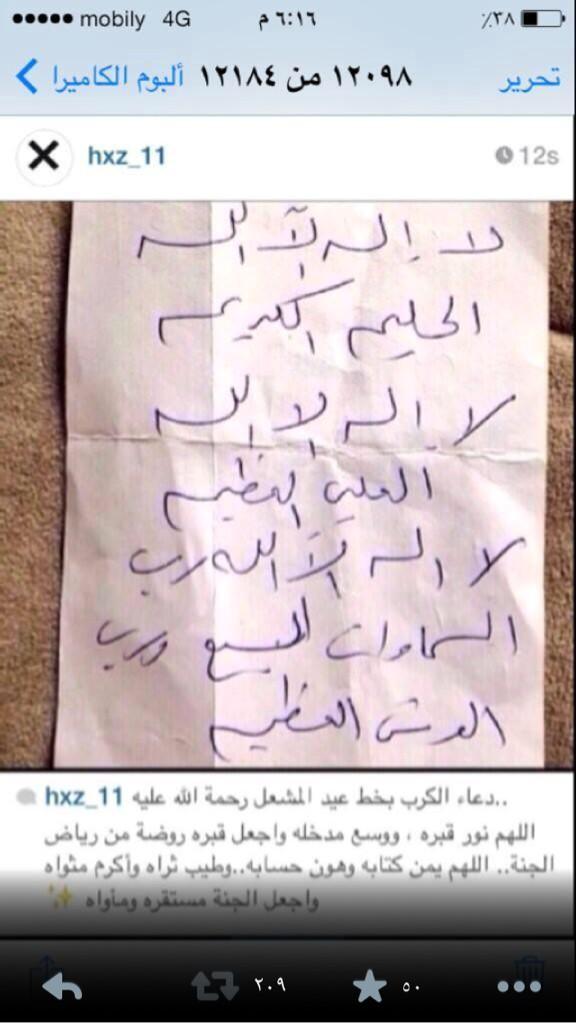 mobily 4G ٦:١٦ م ٣٨٪
ألبوم الكاميرا ١٢٠٩٨ من ١٢١٨٤ تحرير
hxz_11 12s
لا إله إلا الله
الحليم الكريم
لا اله الا الله
العلي العظيم
لا اله الا الله رب
السماوات السبع ورب
العرش العظيم
hxz_11 دعاء الكرب بخط عيد المشعل رحمة الله عليه..
اللهم نور قبره ، ووسع مدخله واجعل قبره روضة من رياض
الجنة.. اللهم يمن كتابه وهون حسابه..وطيب ثراه وأكرم مثواه
واجعل الجنة مستقره ومأواه ✨
٢٠٩ ٥٠